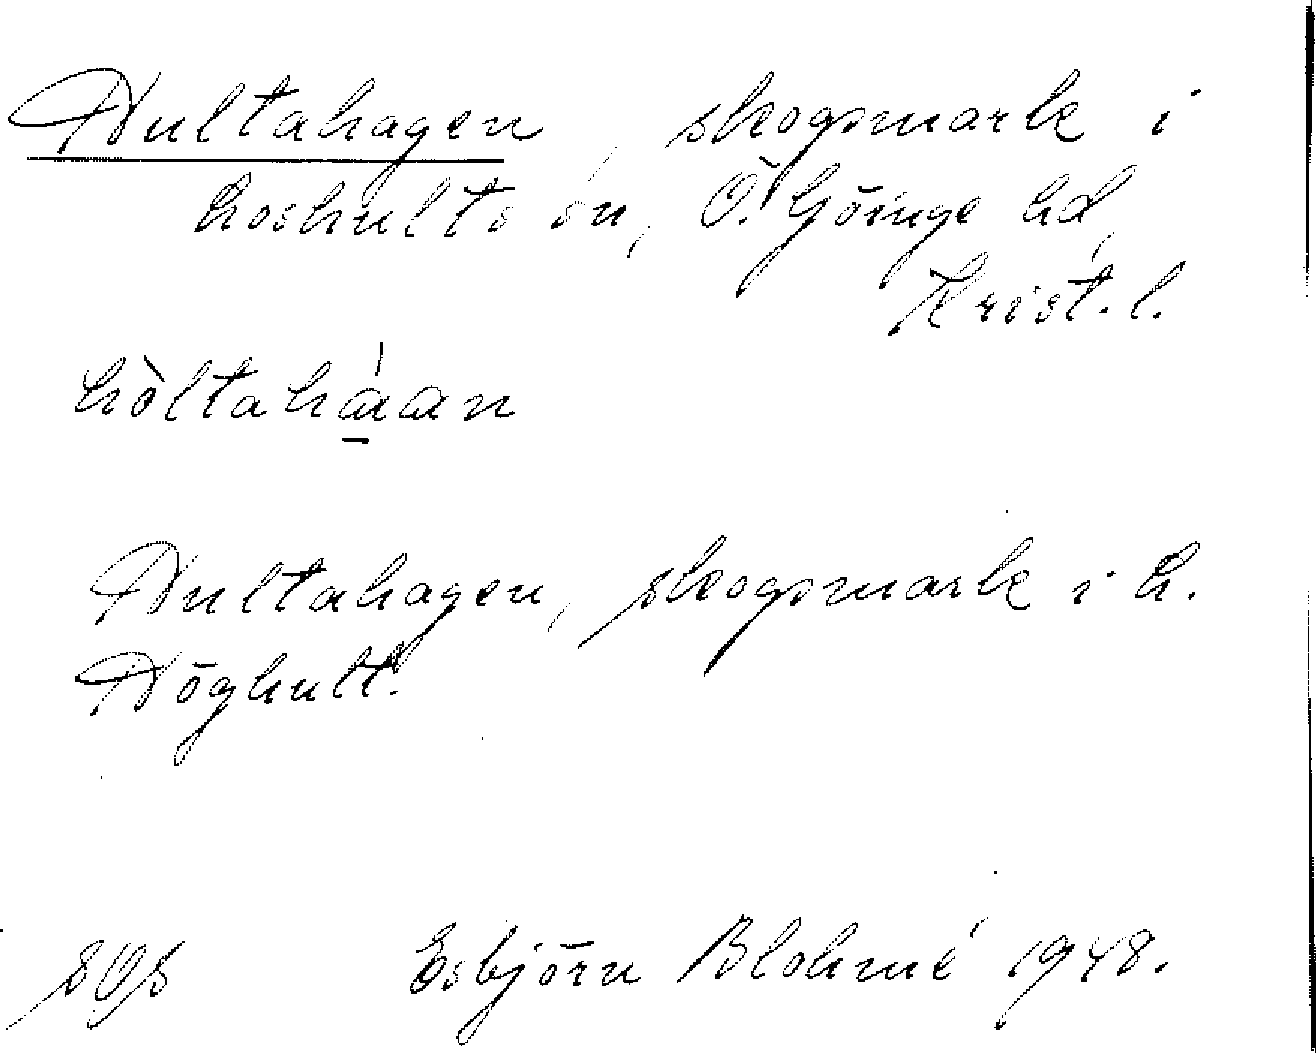 Hultahagen, skogsmark i
Loshults sn, Ö. Göinge hd,
Krist. l.
hòltaháan
Hultahagen, skogsmark i h.
Höghult.
Esbjörn Blohmé 1948.